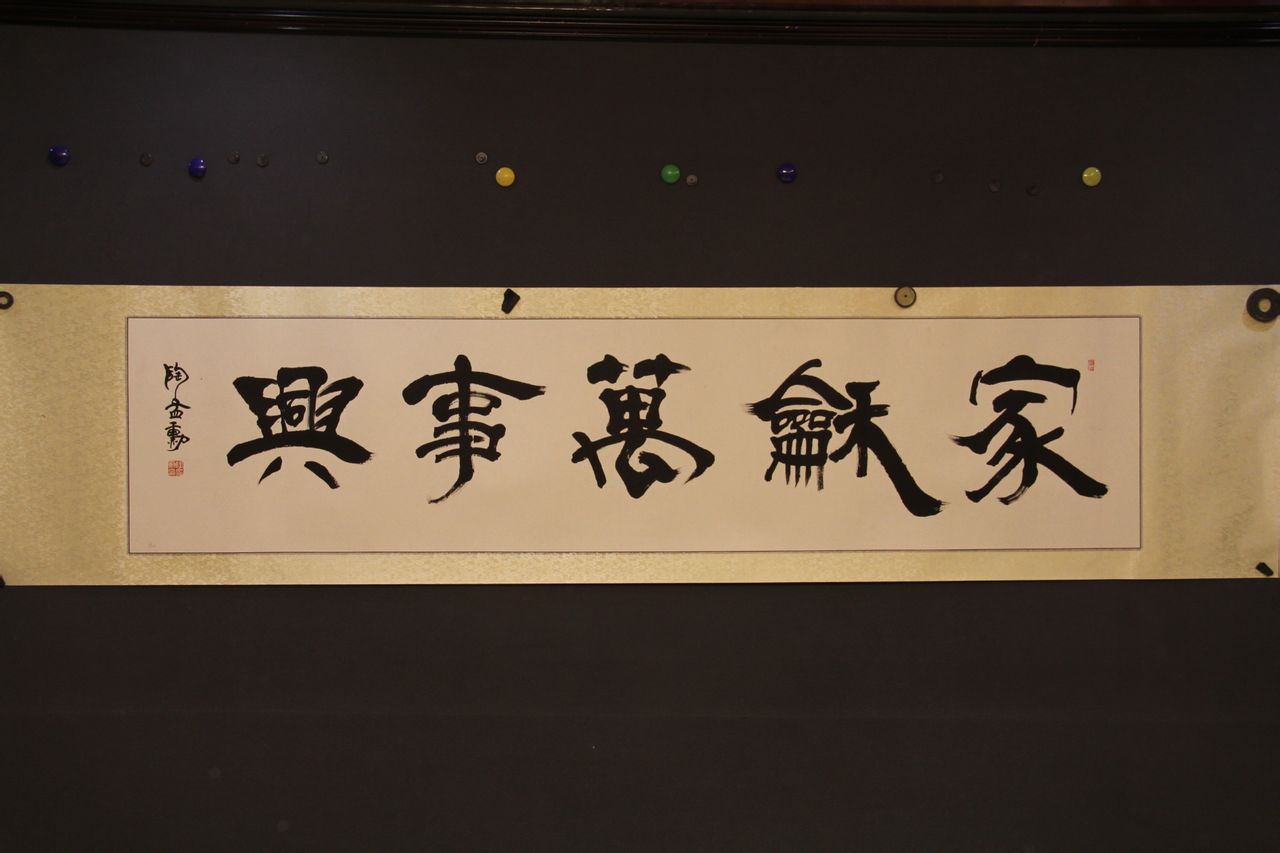 家龢萬事興
陶孟勳